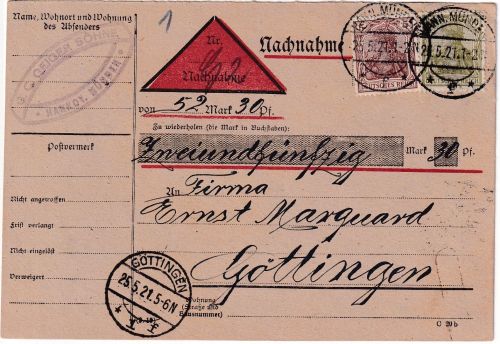 Name, Wohnort und Wohnung
des Absenders
1
GEIGER SÖHNE
HANNOV. MÜNDEN
Postvermerk
Nicht angetroffen
Frist verlangt
Nicht eingelöst
Verweigert
Nr.
Nachnahme
Nachnahme
HANN. MÜNDEN
25.5.21.
HANN. MÜNDEN
25.5.21.
von 52 Mark 30 Pf.
Zu wiederholen (die Mark in Buchstaben):
Zweiundfünfzig Mark 30 Pf.
An Firma
Ernst Marquard
Göttingen
GÖTTINGEN
25.5.21.5-6N
Wohnung
(Straße und
Hausnummer)
C 20b